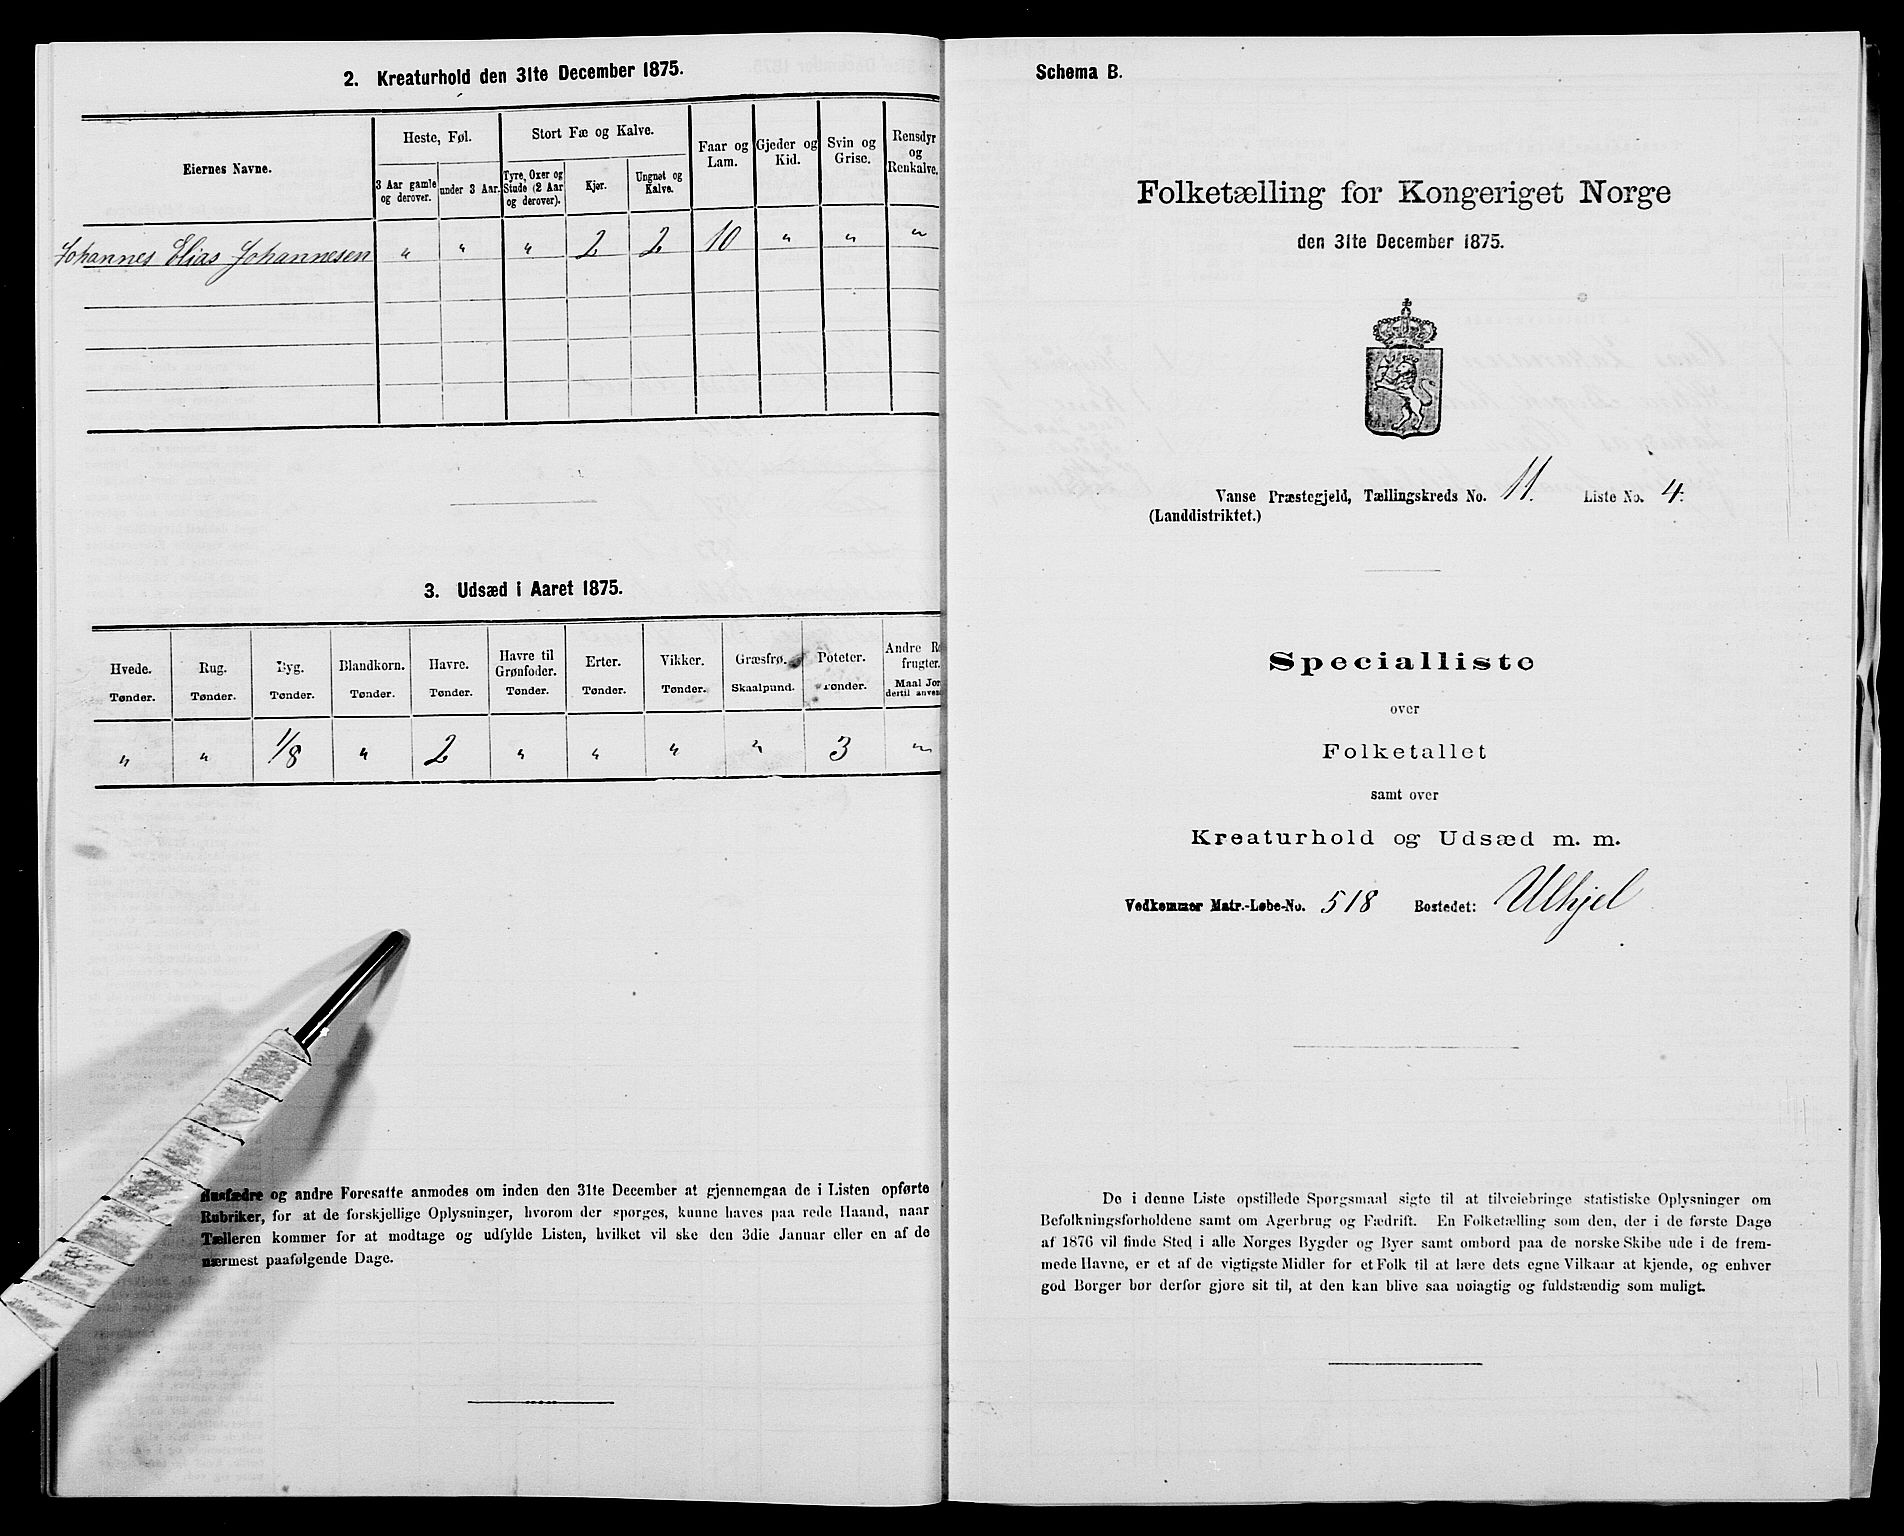 2. Kreaturhold den 31te December 1875.
Eiernes Navne.
Heste, Føl.
Stort Fæ og Kalve.
Faar og Lam.
Gjeder og Kid.
Svin og Grise.
Rensdyr og Renkalve.
3 Aar gamle og derover.
under 3 Aar.
Tyre, Oxer og Stude (2 Aar og derover).
Kjør.
Ungnøt og Kalve.
Johannes Elias Johannesen " " " 2 2 10 " " "
3. Udsæd i Aaret 1875.
Hvede. Rug. Byg. Blandkorn. Havre. Havre til Grønfoder. Erter. Vikker. Græsfrø. Poteter. Andre
frugter.
Tønder. Tønder. Tønder. Tønder. Tønder. Tønder. Tønder. Tønder. Skaalpund. Tønder. Maal Jor
dertil anven
" " 1/8 " 2 " " " " 3 "
Husfædre og andre Foresatte anmodes om inden den 31te December at gjennemgaa de i Listen opførte
Rubriker, for at de forskjellige Oplysninger, hvorom der spørges, kunne haves paa rede Haand, naar
Tælleren kommer for at modtage og udfylde Listen, hvilket vil ske den 3die Januar eller en af de
nærmest paafølgende Dage.
Schema B.
Folketælling for Kongeriget Norge
den 31te December 1875.
Vanse Præstegjeld, Tællingskreds No. 11. Liste No. 4.
(Landdistriktet.)
Specialliste
over
Folketallet
samt over
Kreaturhold og Udsæd m. m.
Vedkommer Matr.-Løbe-No. 518 Bostedet: Ulhjel
De i denne Liste opstillede Spørgsmaal sigte til at tilveiebringe statistiske Oplysninger om
Befolkningsforholdene samt om Agerbrug og Fædrift. En Folketælling som den, der i de første Dage
af 1876 vil finde Sted i alle Norges Bygder og Byer samt ombord paa de norske Skibe ude i de frem-
mede Havne, er et af de vigtigste Midler for et Folk til at lære dets egne Vilkaar at kjende, og enhver
god Borger bør derfor gjøre sit til, at den kan blive saa nøiagtig og fuldstændig som muligt.